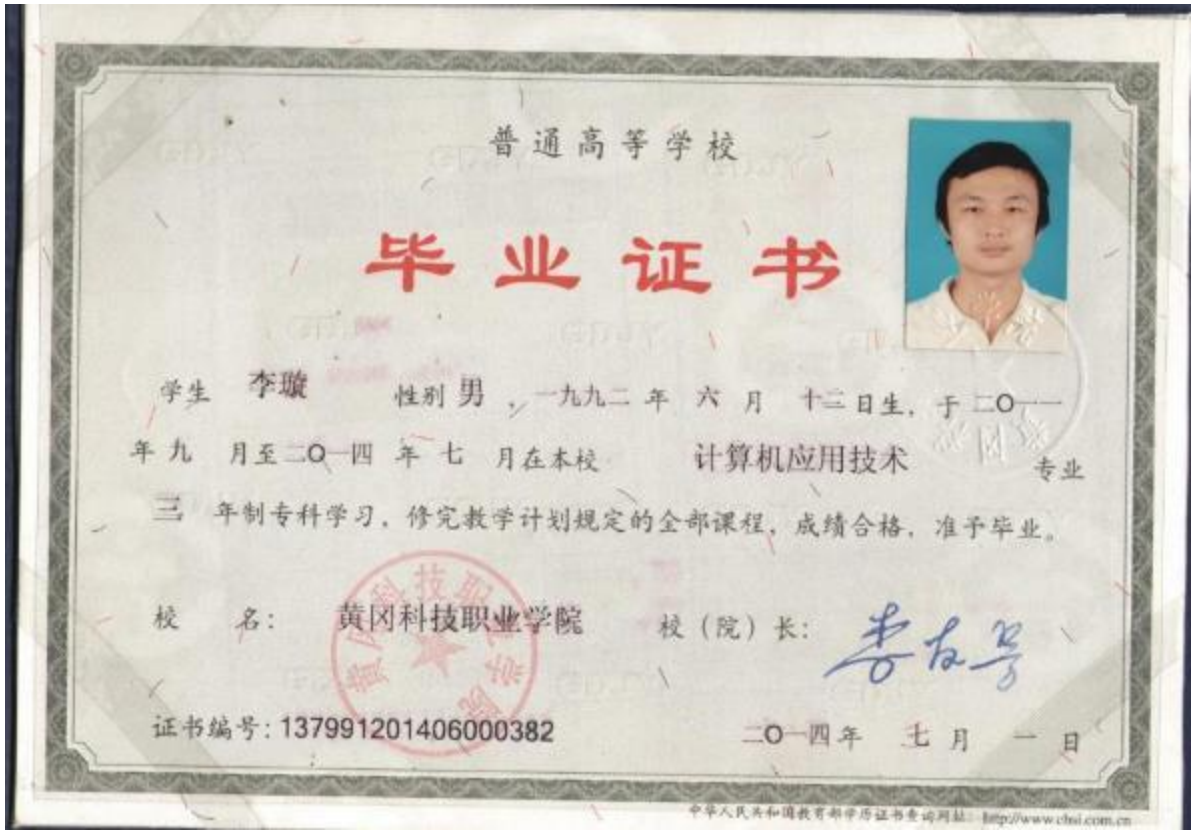 普通高等学校
毕业证书
学生 李璇 性别 男 ，一九九二 年 六 月 十二 日生，于 二〇一一
年 九 月至 二〇一四 年 七 月在本校 计算机应用技术 专业
三 年制专科学习，修完教学计划规定的全部课程，成绩合格，准予毕业。
校 名： 黄冈科技职业学院 校（院）长：
黄冈科技职业学院
证书编号：137991201406000382 二〇一四年 七 月 一 日
中华人民共和国教育部学历证书查询网址： http://www.chsi.com.cn